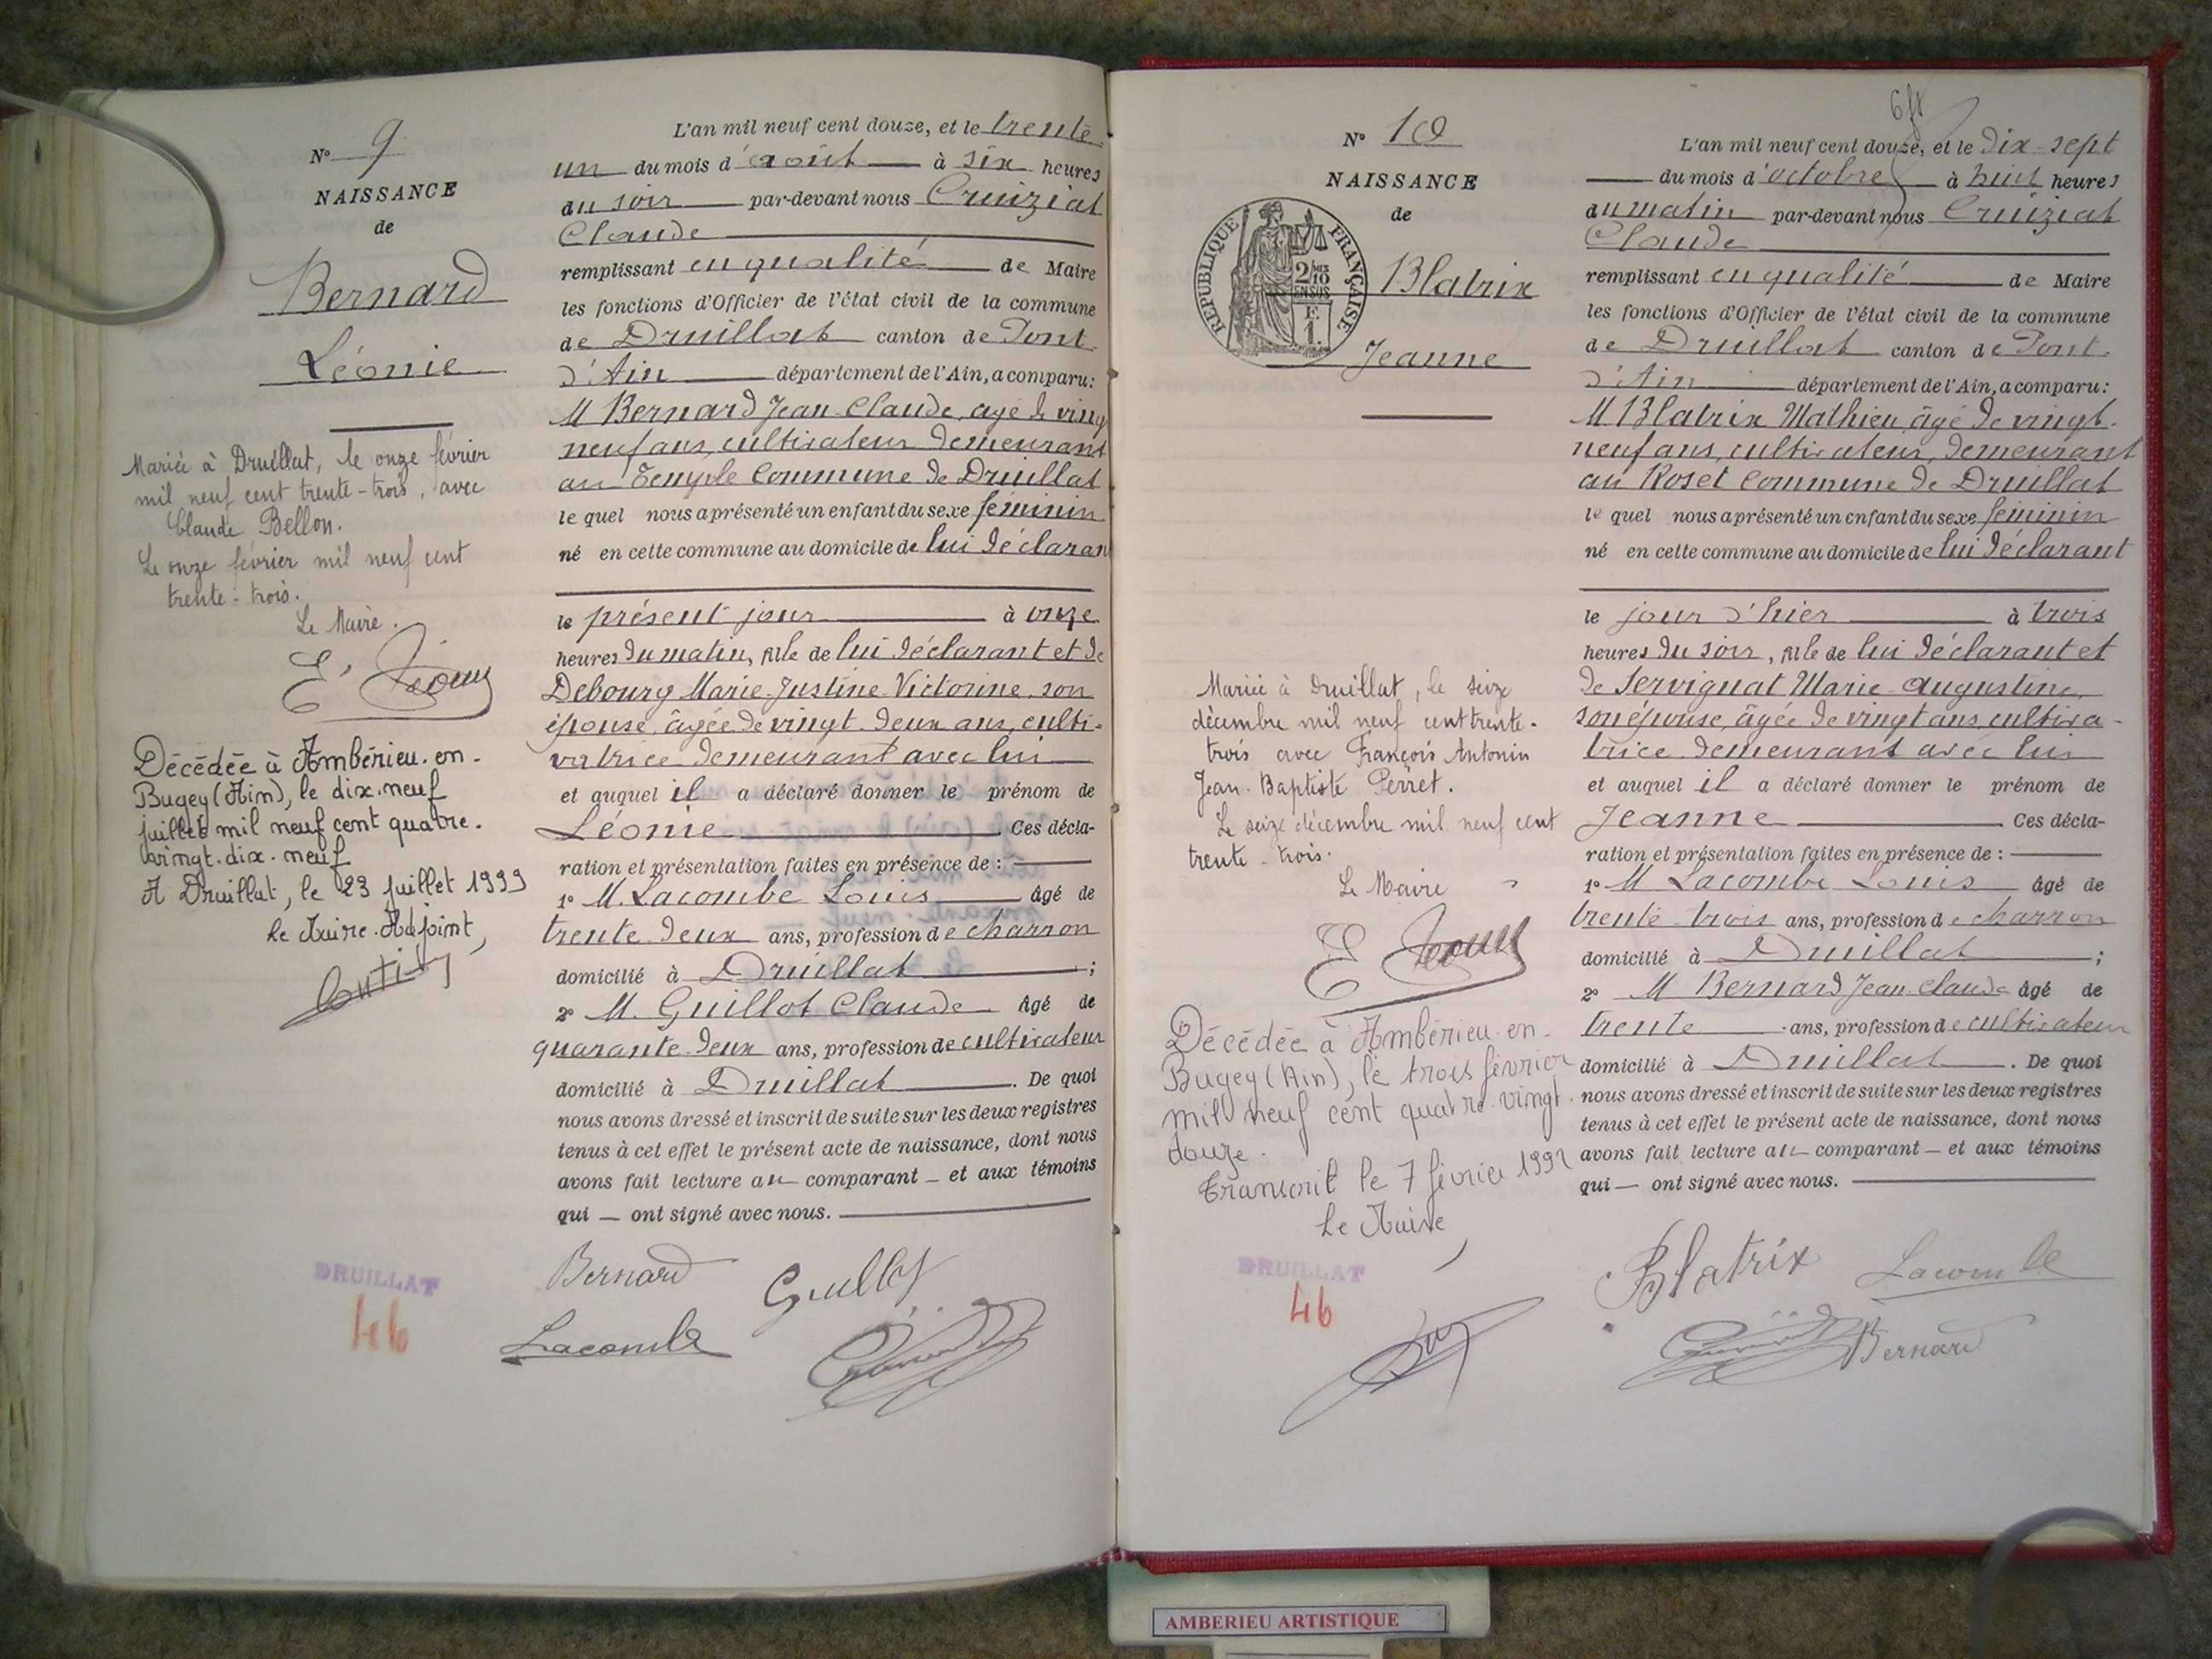 N° 9
NAISSANCE
de
Bernard
Léonie
Mariée à Druillat, le onze février
mil neuf cent trente-trois, avec
Claude Bellon.
Le onze février mil neuf cent
trente-trois.
Le Maire.
Décédée à Ambérieu-en-
Bugey (Ain), le dix-neuf
juillet mil neuf cent quatre-
vingt-dix-neuf
A Druillat, le 23 juillet 1999
Le Maire-Adjoint,
DRUILLAT
46
L'an mil neuf cent douze, et le trente
un du mois d'août à six heures
du soir par-devant nous Cruiziat
Claude
remplissant en qualité de Maire
les fonctions d'Officier de l'état civil de la commune
de Druillat canton de Pont
d'Ain département de l'Ain, a comparu:
M Bernard Jean Claude, âgé de vingt
neuf ans, cultivateur demeurant
au Temple Commune de Druillat
le quel nous a présenté un enfant du sexe féminin
né en cette commune au domicile de lui déclarant
le présent jour à onze
heures du matin, fille de lui déclarant et de
Debourg Marie-Justine-Victorine, son
épouse, âgée de vingt-deux ans, culti-
vatrice demeurant avec lui
et auquel il a déclaré donner le prénom de
Léonie. Ces décla-
ration et présentation faites en présence de :
1° M. Lacombe Louis âgé de
trente deux ans, profession de charron
domicilié à Druillat ;
2° M. Guillot Claude âgé de
quarante-deux ans, profession de cultivateur
domicilié à Druillat. De quoi
nous avons dressé et inscrit de suite sur les deux registres
tenus à cet effet le présent acte de naissance, dont nous
avons fait lecture au comparant – et aux témoins
qui – ont signé avec nous.
Bernard Guillot
Lacombe
N° 10
NAISSANCE
de
RÉPUBLIQUE FRANÇAISE
2/10
EN SUS
F.
1.
Blatrix
Jeanne
Mariée à Druillat, le seize
décembre mil neuf cent trente-
trois avec François Antonin
Jean-Baptiste Perret.
Le seize décembre mil neuf cent
trente-trois.
Le Maire
Décédée à Ambérieu-en-
Bugey (Ain), le trois février
mil neuf cent quatre-vingt-
douze.
Transcrit le 7 février 1992
Le Maire,
DRUILLAT
46
L'an mil neuf cent douze, et le dix-sept
du mois d'octobre à huit heures
du matin par-devant nous Cruiziat
Claude
remplissant en qualité de Maire
les fonctions d'Officier de l'état civil de la commune
de Druillat canton de Pont
d'Ain département de l'Ain, a comparu:
M Blatrix Mathieu âgé de vingt-
neuf ans, cultivateur, demeurant
au Roset Commune de Druillat
le quel nous a présenté un enfant du sexe féminin
né en cette commune au domicile de lui déclarant
le jour d'hier à trois
heures du soir, fille de lui déclarant et
de Servignat Marie-Augustine,
son épouse, âgée de vingt ans, cultiva-
trice demeurant avec lui
et auquel il a déclaré donner le prénom de
Jeanne Ces décla-
ration et présentation faites en présence de :
1° M Lacombe Louis âgé de
trente-trois ans, profession de charron
domicilié à Druillat ;
2° M Bernard Jean Claude âgé de
trente ans, profession de cultivateur
domicilié à Druillat. De quoi
nous avons dressé et inscrit de suite sur les deux registres
tenus à cet effet le présent acte de naissance, dont nous
avons fait lecture au comparant – et aux témoins
qui – ont signé avec nous.
Blatrix Lacombe
Bernard
AMBERIEU ARTISTIQUE